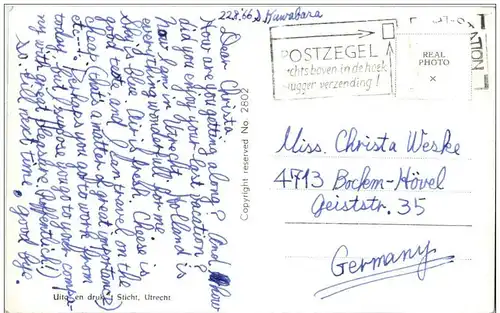 22.8.'66 S. Kuwabara
Dear Christa
How are you getting along? And how
did you enjoy your last vacation?
Now I am in Utrecht. Holland is
everything wonderful for me
sky is blue, air is fresh. Cheese is
good taste and I can travel on the
cheap. (that's a matter of great importance)
etc.... Perhaps you go to work from
now, but I suppose you go to your compa-
ny with great pleasure. (Apfentlich!)
So till next time, good bye.
Copyright reserved No. 2802
Uitg. en druk 't Sticht, Utrecht
POSTZEGEL
rechts boven in de hoek
vlugger verzending!
REAL
PHOTO
×
Miss. Christa Weske
4713 Bockem-Hövel
Geiststr. 35
Germany